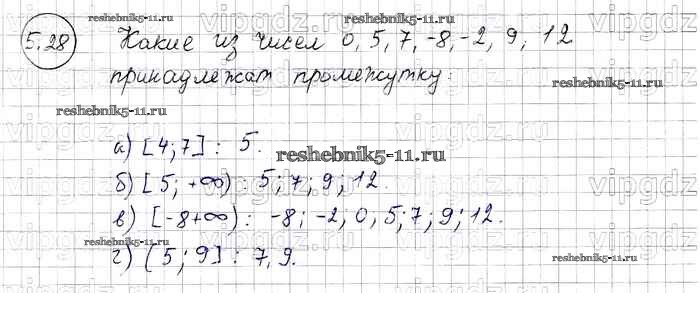 reshebnik5-11.ru
5.28 Какие из чисел 0, 5, 7, -8, -2, 9, 12
принадлежат промежутку:
reshebnik5-11.ru
reshebnik5-11.ru
а) [4; 7] : 5.
reshebnik5-11.ru
б) [5; +∞) : 5; 7; 9; 12.
в) [-8+∞) : -8; -2; 0, 5; 7; 9; 12.
reshebnik5-11.ru
г) (5; 9] : 7, 9.
reshebnik5-11.ru
vipgdz.ru